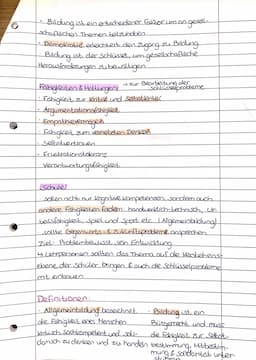 · Bildung ist ein entscheidener Faktor um an gesell-
schaftlichen Themen teilzunehmen
· Demokratie erleichtert den Zugang zu Bildung
· Bildung ist der Schlüssel, um gesellschaftliche
Herausforderungen zu bewältigen
Fähigkeiten & Haltungen → zur Bearbeitung der Schlüsselprobleme
· Fähigkeit zur Kritik und Selbstkritik
· Argumentationsfähigkeit
· Empathievermögen
· Fähigkeit zum vernetzten Denken
· Selbstvertrauen
· Frustrationstoleranz
· Verantwortungsfähigkeit
Schule:
· sollen nicht nur kognitive Kompetenzen, sondern auch
andere Fähigkeiten fördern: handwerklich technisch,
Spiel und Sport etc. (Allgemeinbildung)
· sollte Gegenwarts- & Zukunftsprobleme ansprechen
· Ziel: Problembewusst sein Entwicklung
↳ Lehrpersonen sollten das Thema auf die
ebene der Schüler bringen & auch die Schlüsselprobleme
mit einbauen
Definitionen:
· Allgemeinbildung bezeichnet
die Fähigkeit eines Menschen
kritisch, sachkompetent und
zu denken und zu handeln
· Bildung ist ein
Bürgerrecht und
die Fähigkeit zur Selbst-
bestimmung, Mitbestim-
mung & Solidarität